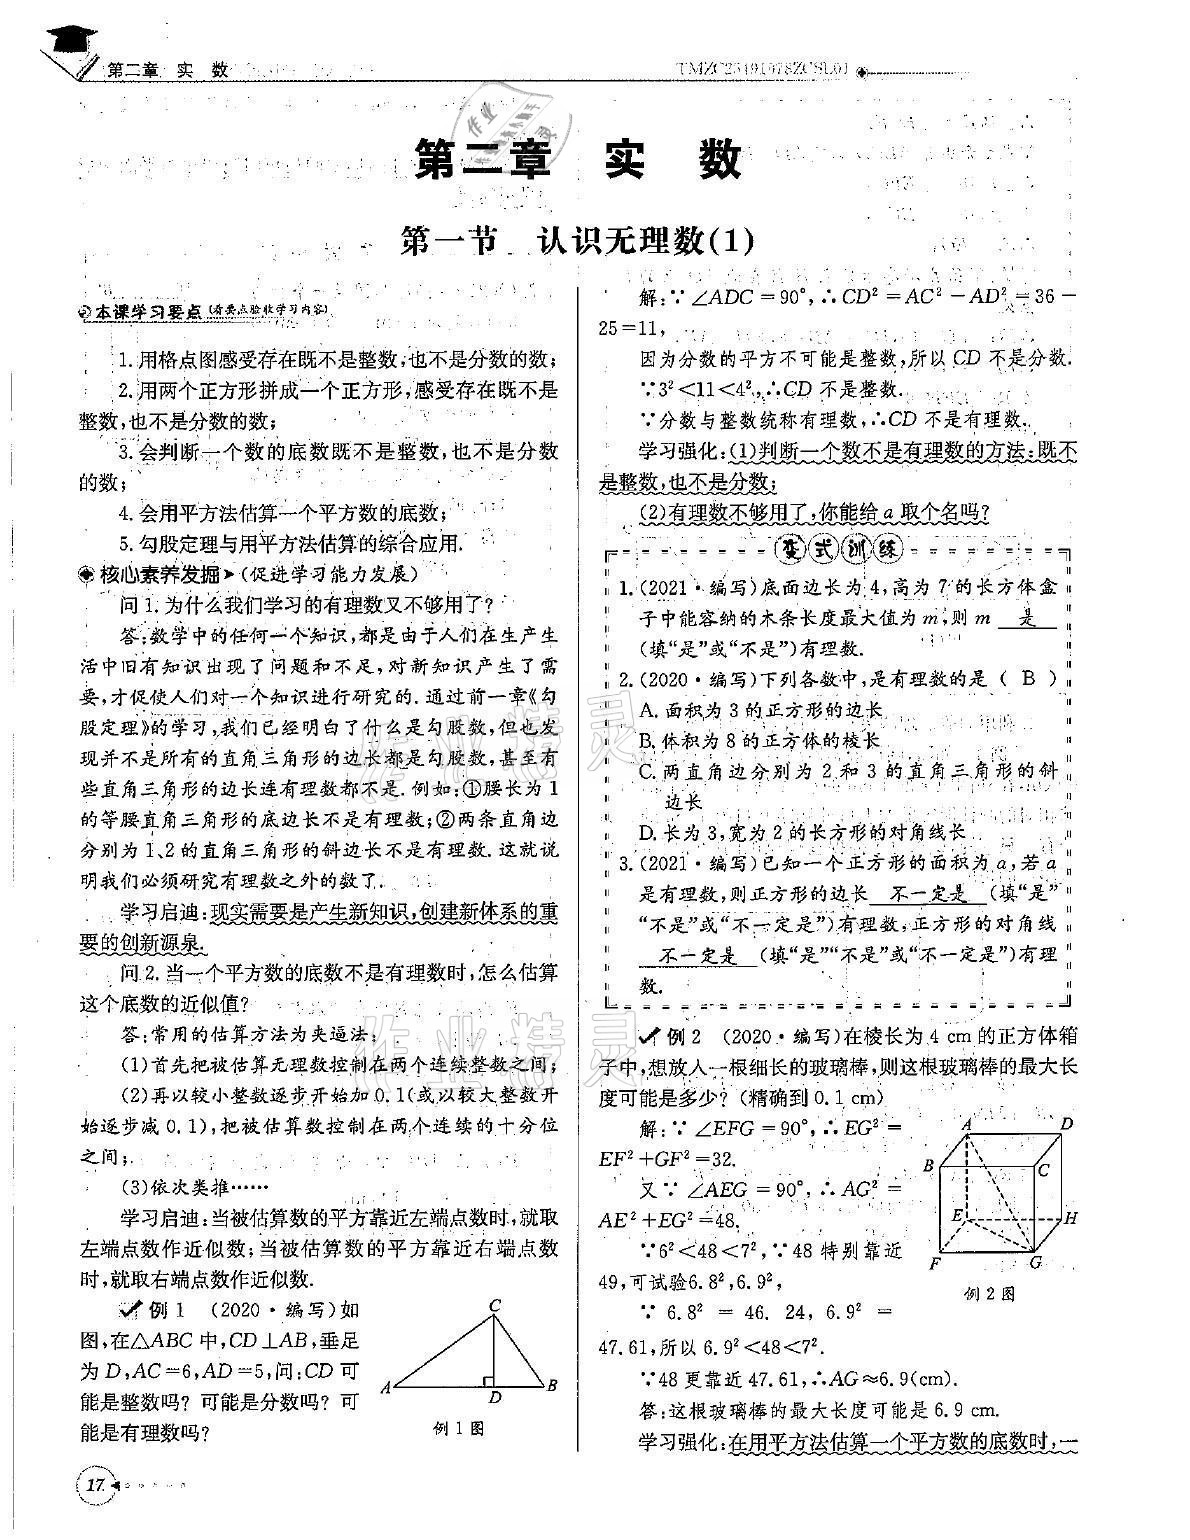 第二章 实 数
TMZC25491578ZCSL01
第二章 实 数
第一节 认识无理数(1)
本课学习要点(看要点验收学习内容)
1. 用格点图感受存在既不是整数,也不是分数的数;
2. 用两个正方形拼成一个正方形,感受存在既不是
整数,也不是分数的数;
3. 会判断一个数的底数既不是整数,也不是分数
的数;
4. 会用平方法估算一个平方数的底数;
5. 勾股定理与用平方法估算的综合应用.
核心素养发掘➤(促进学习能力发展)
问 1. 为什么我们学习的有理数又不够用了?
答:数学中的任何一个知识,都是由于人们在生产生
活中旧有知识出现了问题和不足,对新知识产生了需
要,才促使人们对一个知识进行研究的. 通过前一章《勾
股定理》的学习,我们已经明白了什么是勾股数,但也发
现并不是所有的直角三角形的边长都是勾股数,甚至有
些直角三角形的边长连有理数都不是. 例如:①腰长为 1
的等腰直角三角形的底边长不是有理数;②两条直角边
分别为 1、2 的直角三角形的斜边长不是有理数. 这就说
明我们必须研究有理数之外的数了.
学习启迪:现实需要是产生新知识,创建新体系的重
要的创新源泉.
问 2. 当一个平方数的底数不是有理数时,怎么估算
这个底数的近似值?
答:常用的估算方法为夹逼法:
(1)首先把被估算无理数控制在两个连续整数之间;
(2)再以较小整数逐步开始加 0.1(或以较大整数开
始逐步减 0.1),把被估算数控制在两个连续的十分位
之间;
(3)依次类推……
学习启迪:当被估算数的平方靠近左端点数时,就取
左端点数作近似数;当被估算数的平方靠近右端点数
时,就取右端点数作近似数.
✓例 1 (2020·编写)如
图,在△ABC 中,CD⊥AB,垂足
为 D,AC=6,AD=5,问:CD 可
能是整数吗? 可能是分数吗? 可
能是有理数吗?
C
A
D
B
例 1 图
17.
解:∵∠ADC=90°,∴CD²=AC²-AD²=36-
25=11,
因为分数的平方不可能是整数,所以 CD 不是分数.
∵3²<11<4²,∴CD 不是整数.
∵分数与整数统称有理数,∴CD 不是有理数.
学习强化:(1)判断一个数不是有理数的方法:既不
是整数,也不是分数;
(2)有理数不够用了,你能给 a 取个名吗?
变式训练
1. (2021·编写)底面边长为 4,高为 7 的长方体盒
子中能容纳的木条长度最大值为 m,则 m 是
(填“是”或“不是”)有理数.
2. (2020·编写)下列各数中,是有理数的是 ( B )
A. 面积为 3 的正方形的边长
B. 体积为 8 的正方体的棱长
C. 两直角边分别为 2 和 3 的直角三角形的斜
边长
D. 长为 3,宽为 2 的长方形的对角线长
3. (2021·编写)已知一个正方形的面积为 a,若 a
是有理数,则正方形的边长 不一定是 (填“是”
“不是”或“不一定是”)有理数,正方形的对角线
不一定是 (填“是”“不是”或“不一定是”)有理
数.
✓例 2 (2020·编写)在棱长为 4 cm 的正方体箱
子中,想放入一根细长的玻璃棒,则这根玻璃棒的最大长
度可能是多少? (精确到 0.1 cm)
解:∵∠EFG=90°,∴EG²=
EF²+GF²=32.
又∵∠AEG=90°,∴AG²=
AE²+EG²=48.
∵6²<48<7²,∵48 特别靠近
49,可试验6.8²,6.9²,
∵ 6.8² = 46.24, 6.9² =
47.61,所以 6.9²<48<7².
∵48 更靠近 47.61,∴AG≈6.9(cm).
答:这根玻璃棒的最大长度可能是 6.9 cm.
学习强化:在用平方法估算一个平方数的底数时,一
A
D
B
C
E
H
F
G
例 2 图
作业精灵
作业精灵